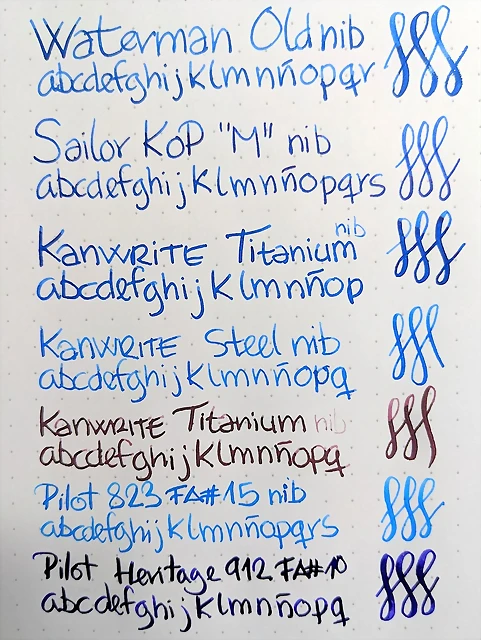 Waterman Old nib
abcdefghijklmnñopqr
Sailor KoP "M" nib
abcdefghijklmnñopqrs
Kanwrite Titanium nib
abcdefghijklmnñop
Kanwrite Steel nib
abcdefghijklmnñopq
Kanwrite Titanium nib
abcdefghijklmnñopq
Pilot 823 FA#15 nib
abcdefghijklmnñopqrs
Pilot Heritage 912 FA#10
abcdefghijklmnñopq